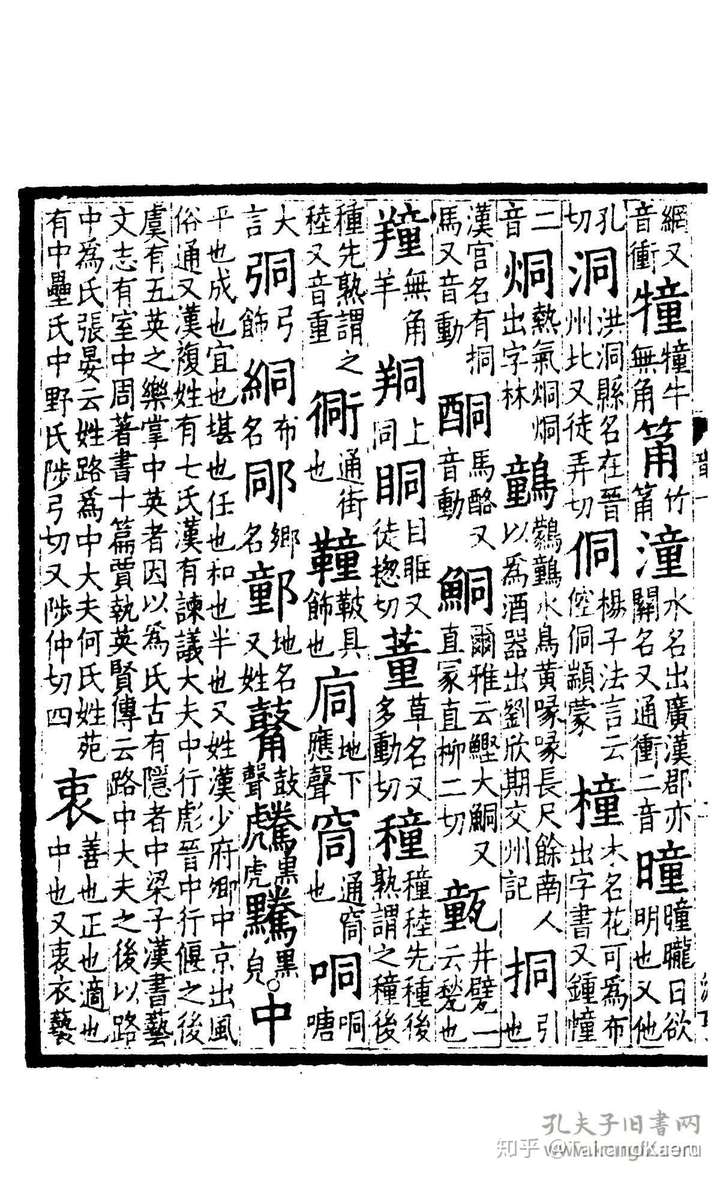 網又音衝犝犝牛無角筩竹筩潼水名出廣漢郡亦關名又通衝二音曈曈曨日欲明也又他
孔切洞洪洞縣名在晉州北又徒弄切侗楊子法言云倥侗顓蒙橦木名花可爲布出字書又鍾幢
二音烔熱氣烔烔出字林水鳥黃喙喙長尺餘南人以爲酒器出劉欣期交州記挏引也
漢官名有挏馬又音動酮馬酪又音動鮦爾雅云鰹大鮦又直冢直柳二切井甓一云甃也
無角羊上同眮目眶又徒揔切蕫草名又多動切穜穜稑先種後熟謂之穜後
種先熟謂之稑又音重衕通街也鞁具飾也地下應聲通窗也哃哃嘡
大言弓飾絧布名鄉名地名又姓鼓聲黑虎黑皃中
平也成也宜也堪也任也和也半也又姓漢少府卿中京出風
俗通又漢複姓有七氏漢有諫議大夫中行彪晉中行偃之後
虞有五英之樂掌中英者因以爲氏古有隱者中梁子漢書藝
文志有室中周著書十篇賈執英賢傳云路中大夫之後以路
中爲氏張晏云姓路爲中大夫何氏姓苑
有中壘氏中野氏陟弓切又陟仲切四衷善也正也適也中也又衷衣褻
孔夫子旧书网
知乎